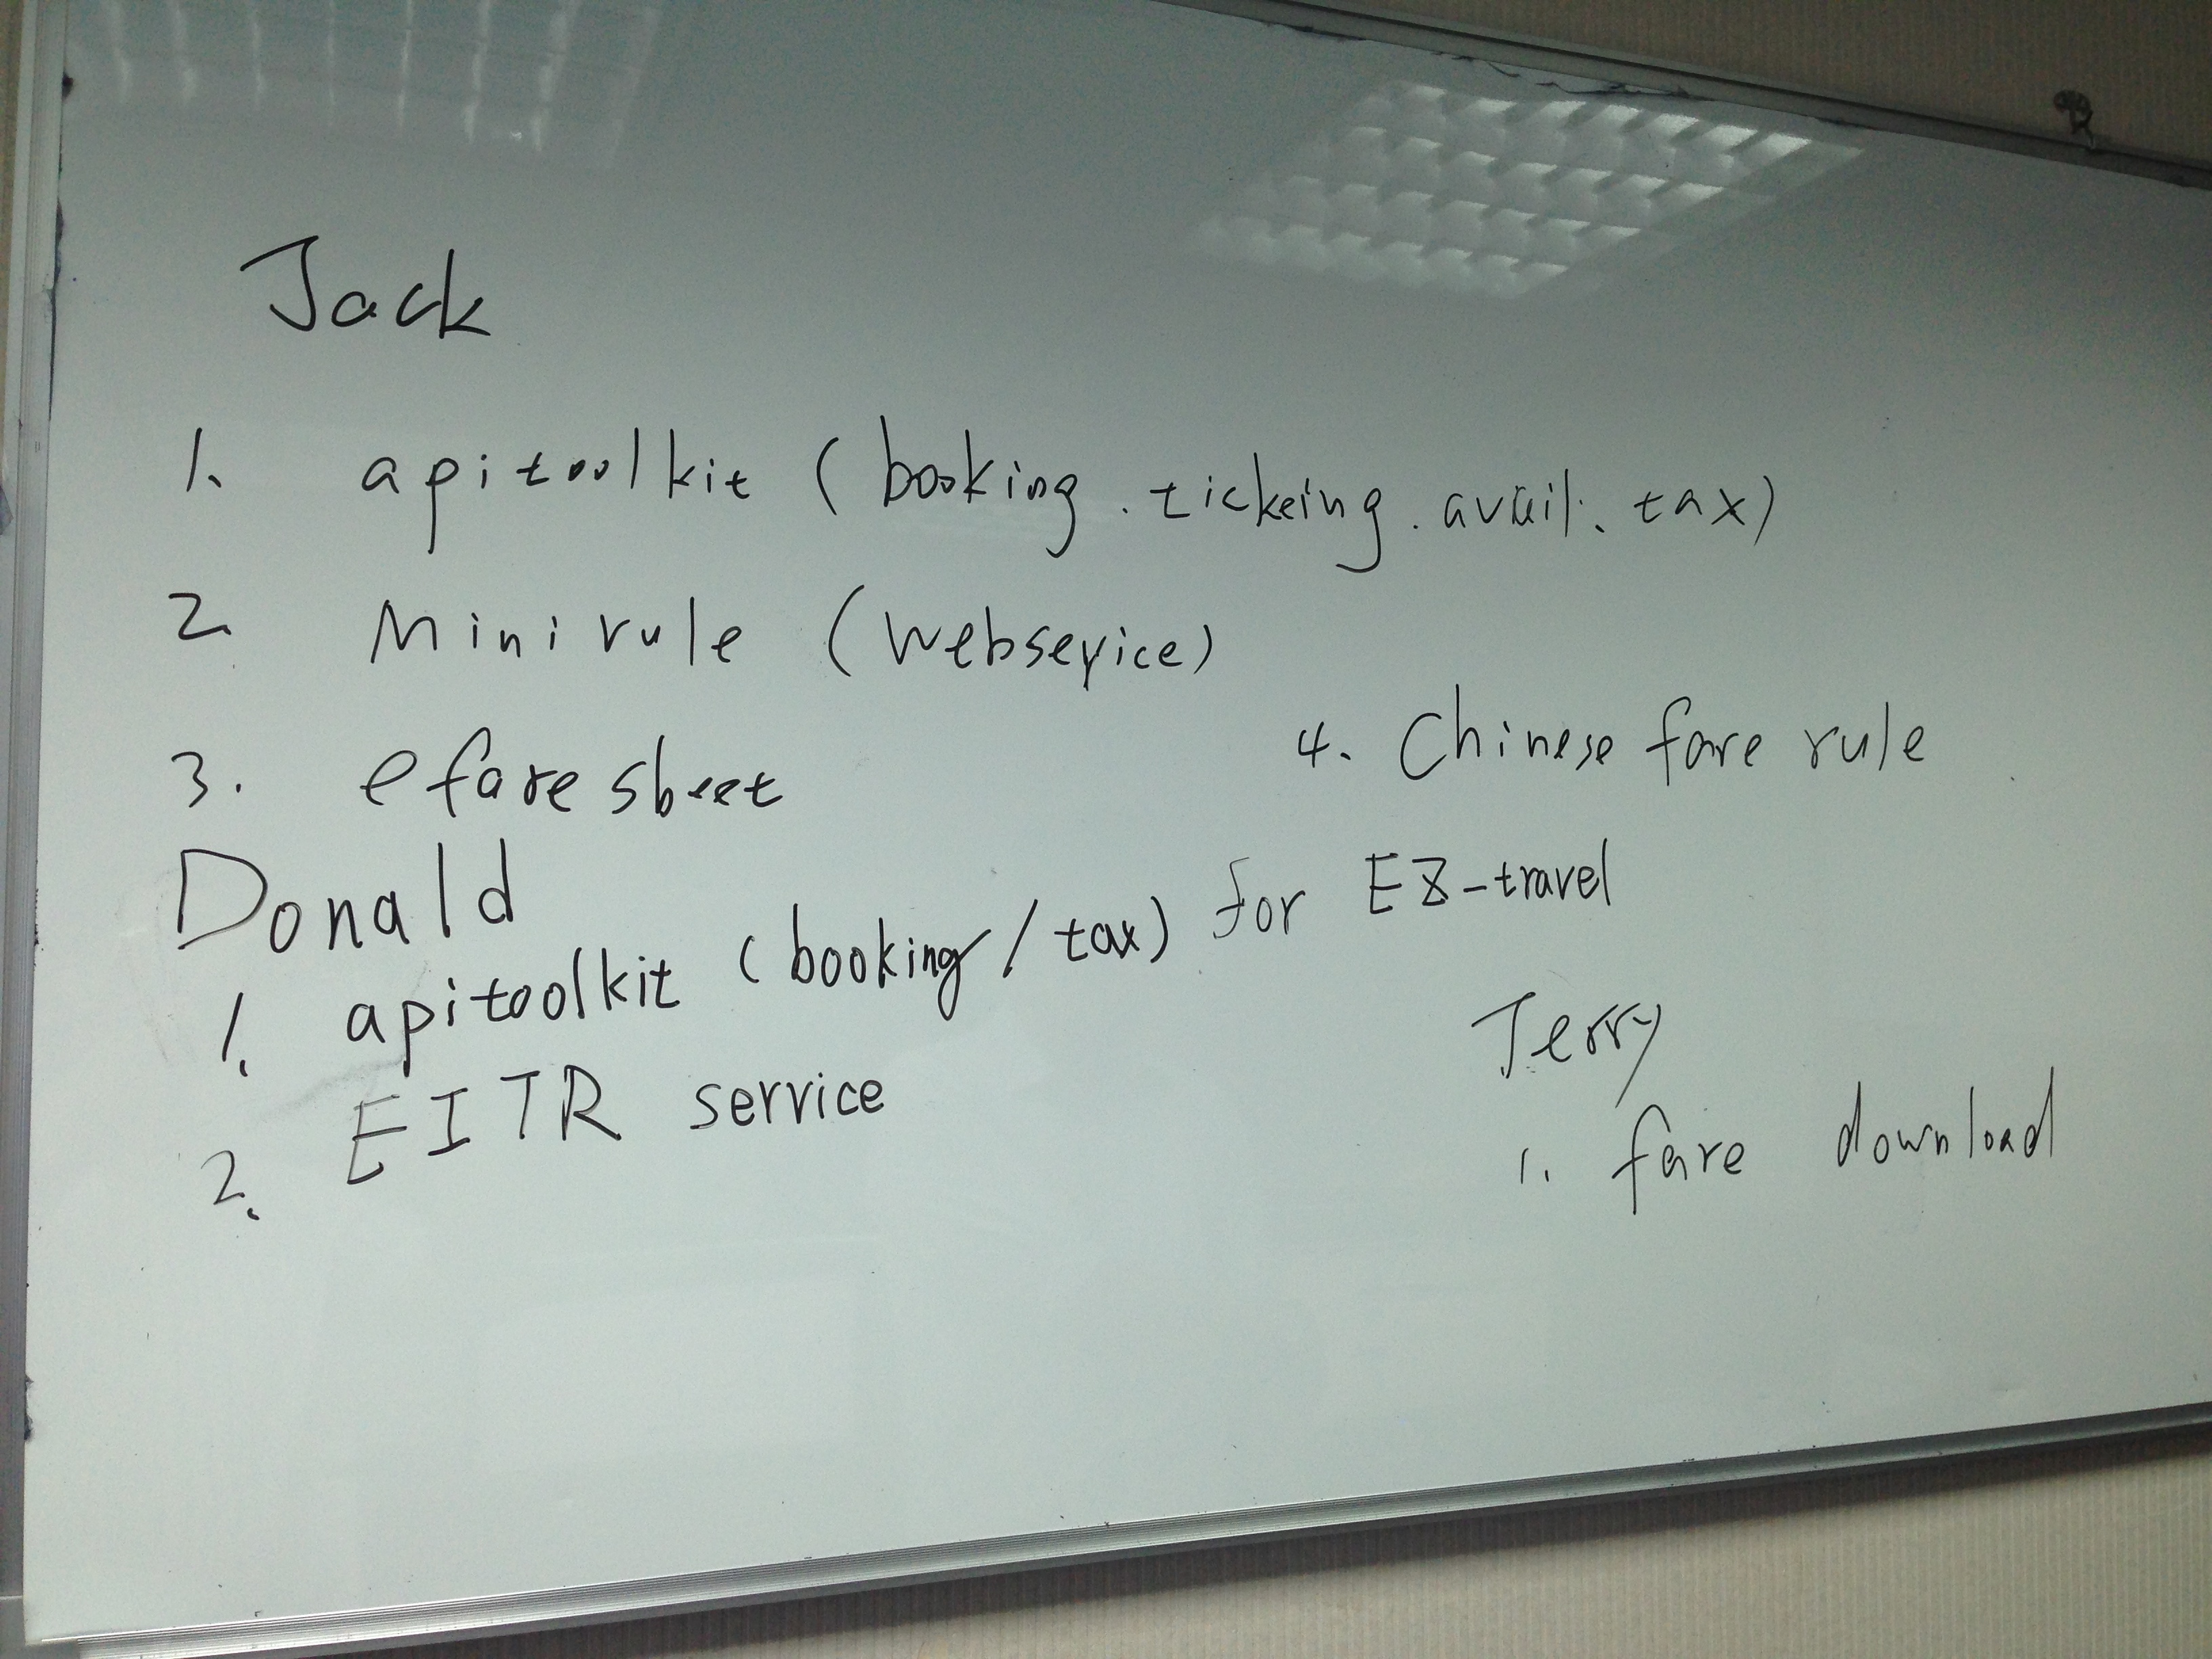 Jack
1. apitoolkit (booking. tickeing. avail. tax)
2. Minirule (websevice)
3. efare sheet
4. Chinese fare rule
Donald
1. apitoolkit (booking/tax) for EZ-travel
2. EITR service
Jerry
1. fare download